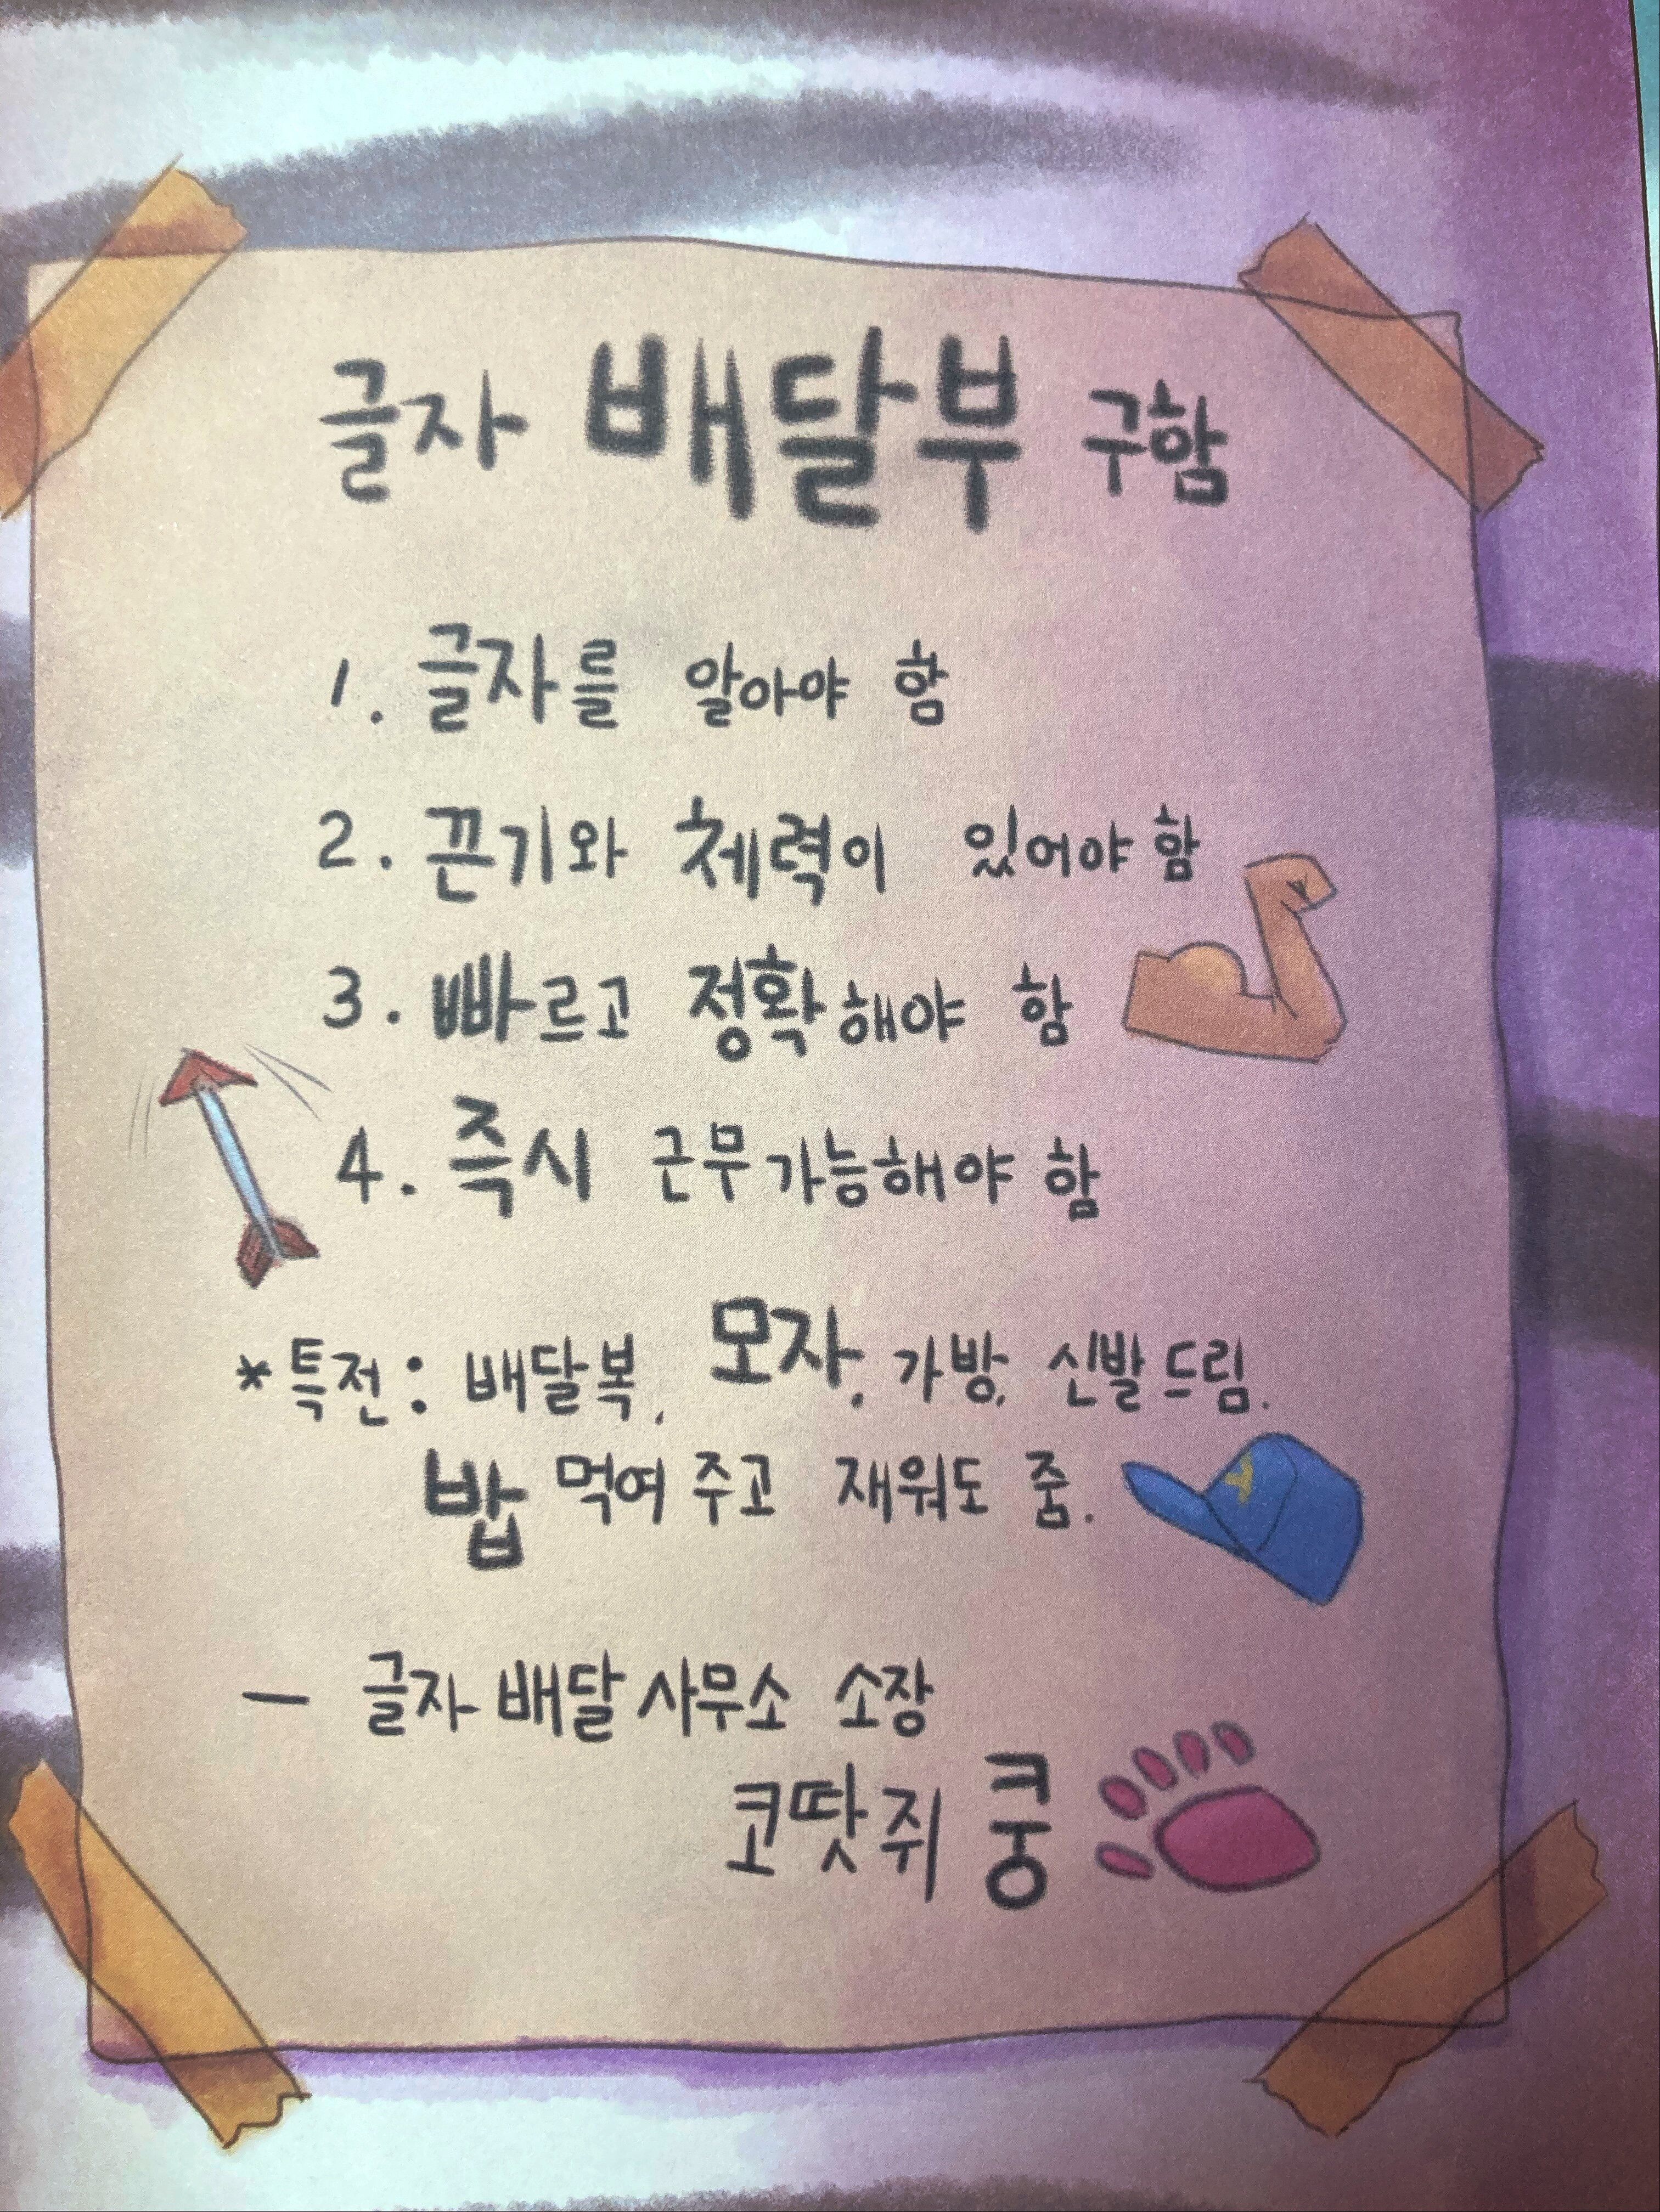 글자 배달부 구함
1. 글자를 알아야 함
2. 끈기와 체력이 있어야 함
3. 빠르고 정확해야 함
4. 즉시 근무가능해야 함
*특전: 배달복, 모자, 가방, 신발 드림.
밥 먹여 주고 재워도 줌.
— 글자 배달 사무소 소장
코땃쥐 쿵